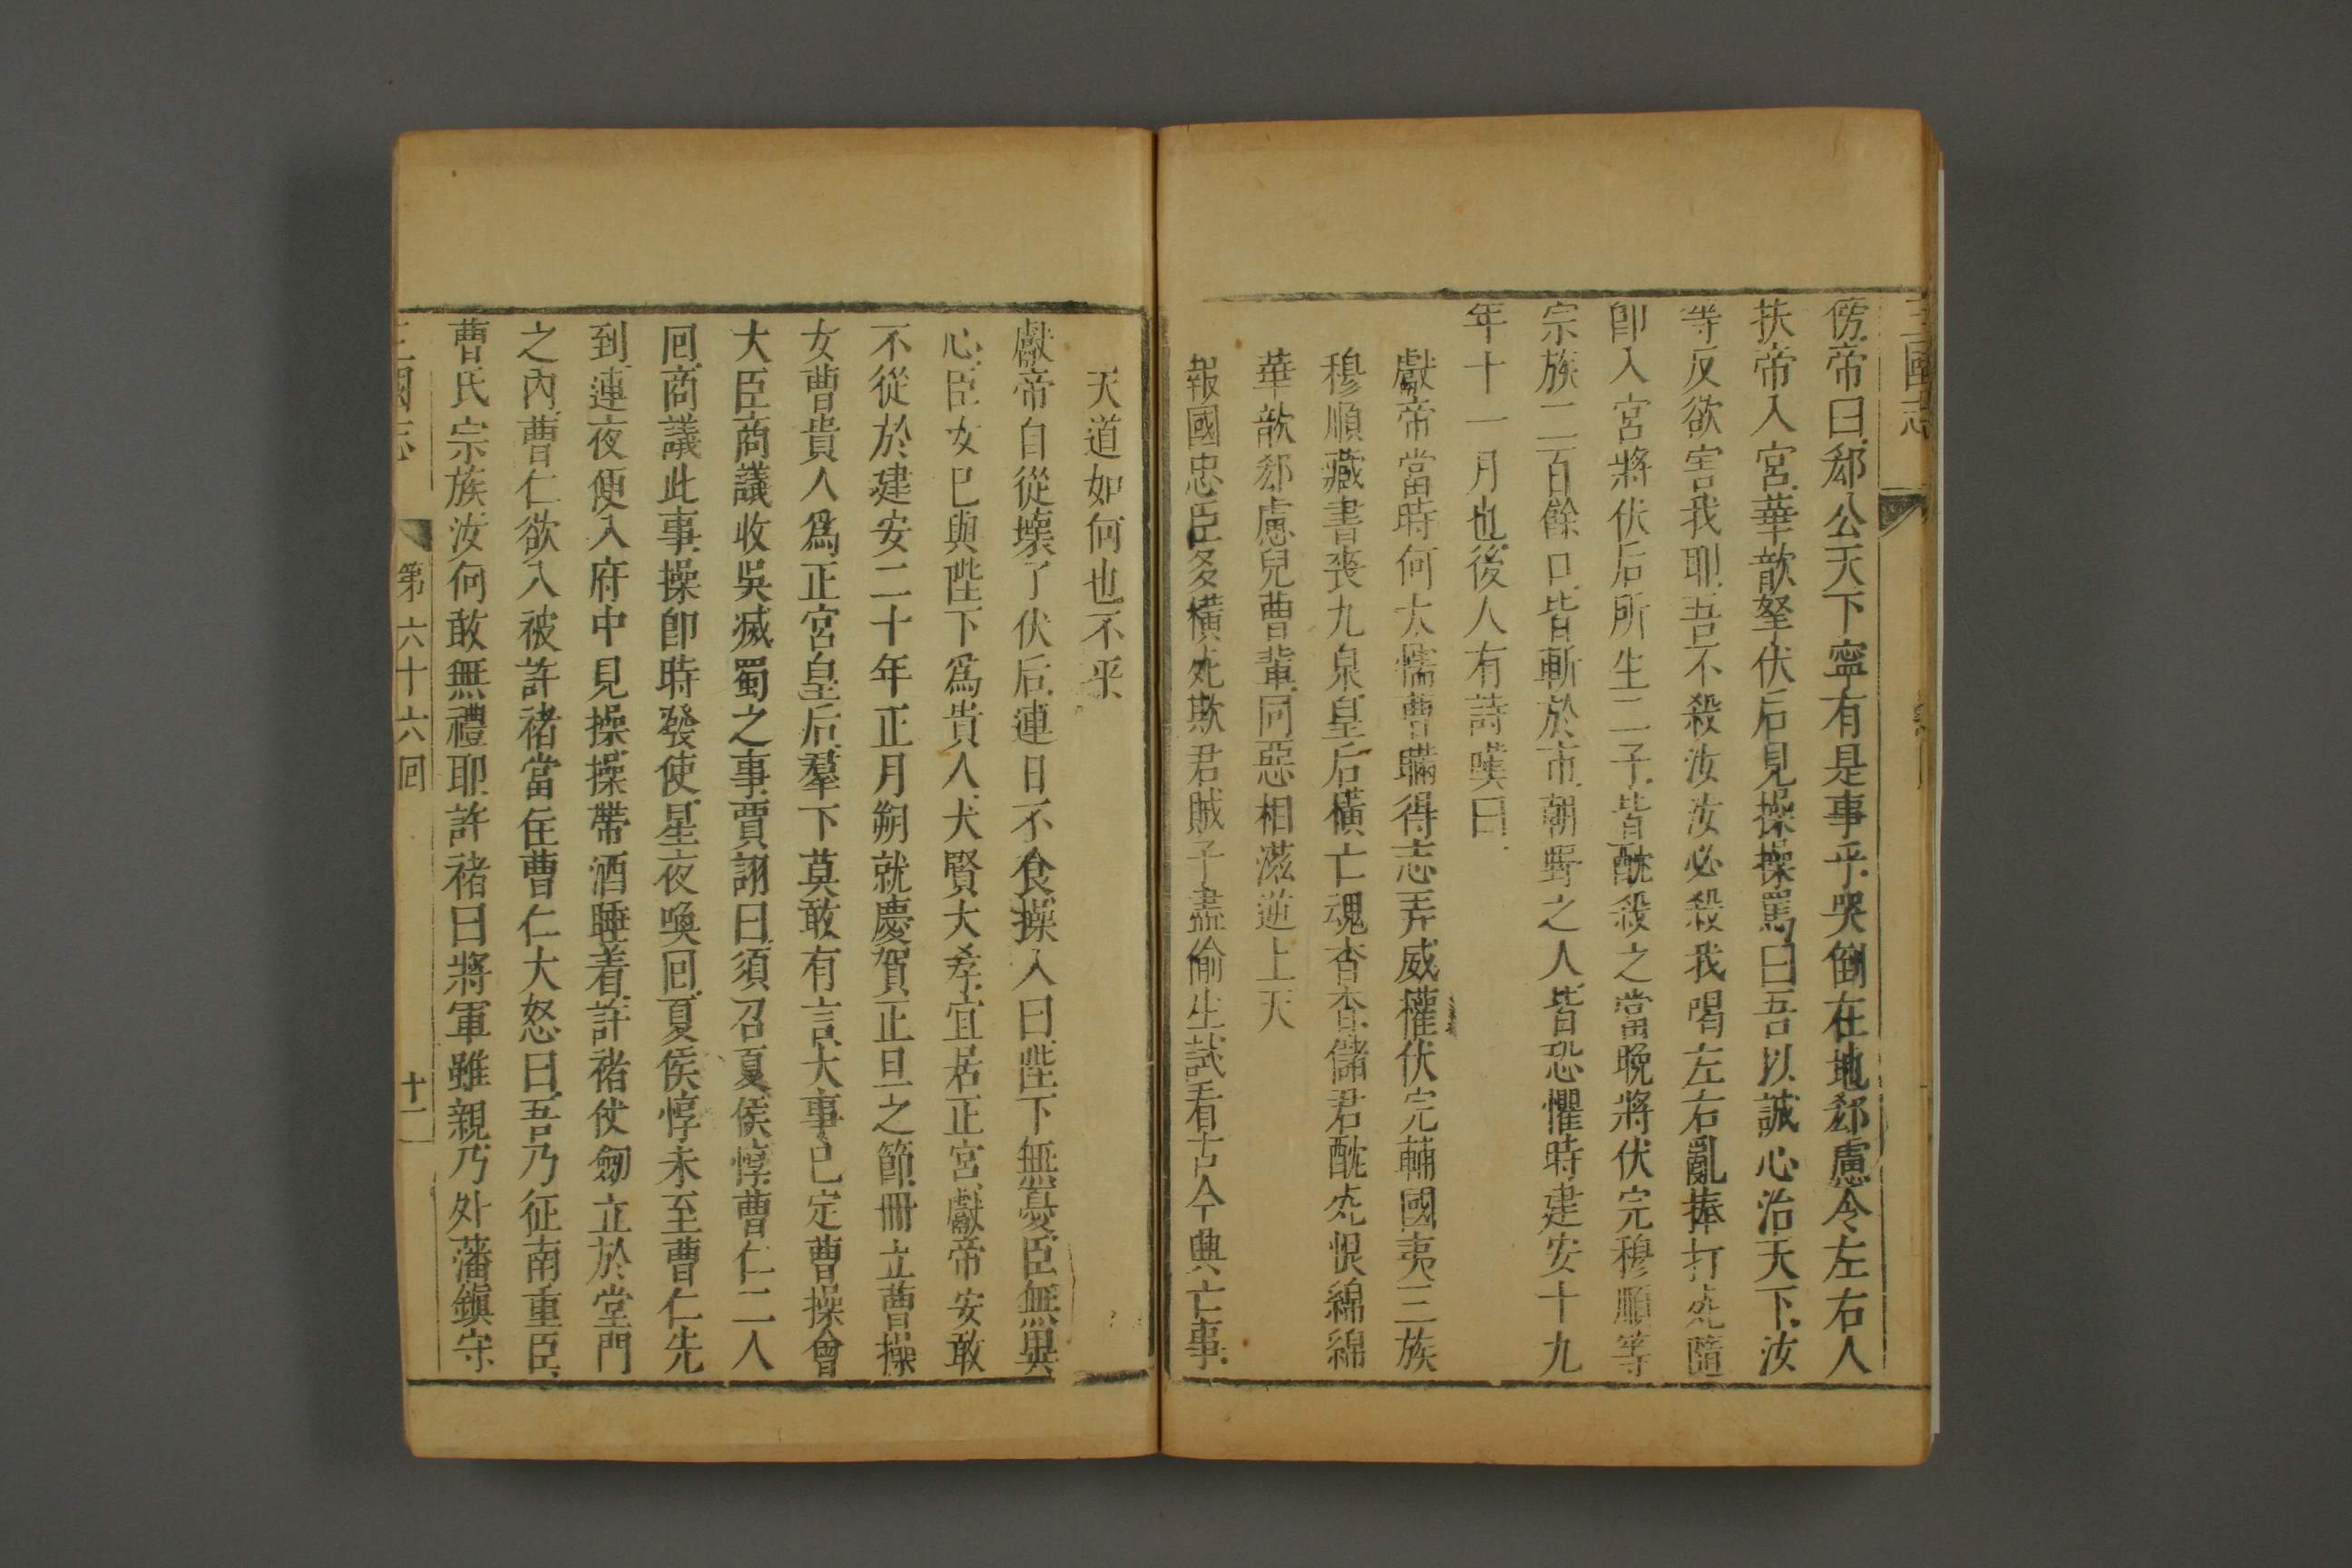 三國志
傍帝曰郄公天下寧有是事乎哭倒在地郄慮令左右人
扶帝入宮華歆拏伏后見操操罵曰吾以誠心治天下汝
等反欲害我耶吾不殺汝汝必殺我喝左右亂捧打死隨
卽入宮將伏后所生二子皆酖殺之當晚將伏完穆順等
宗族二百餘口皆斬於市朝野之人皆恐懼時建安十九
年十一月也後人有詩嘆曰
獻帝當時何太懦曹瞞得志弄威權伏完輔國夷三族
穆順藏書喪九泉皇后橫亡魂杳杳儲君酖死恨綿綿
華歆郄慮兒曹輩同惡相滋逆上天
報國忠臣多橫死欺君賊子盡偷生試看古今興亡事
天道如何也不平
獻帝自從壞了伏后連日不食操入曰陛下無憂臣無異
心臣女已與陛下爲貴人大賢大孝宜居正宮獻帝安敢
不從於建安二十年正月朔就慶賀正旦之節冊立曹操
女曹貴人爲正宮皇后羣下莫敢有言大事已定曹操會
大臣商議收吳滅蜀之事賈詡曰須召夏侯惇曹仁二人
回商議此事操卽時發使星夜喚回夏侯惇未至曹仁先
到連夜便入府中見操操帶酒睡着許褚仗劒立於堂門
之內曹仁欲入被許褚當住曹仁大怒曰吾乃征南重臣
曹氏宗族汝何敢無禮耶許褚曰將軍雖親乃外藩鎭守
三國志 第六十六回 十一